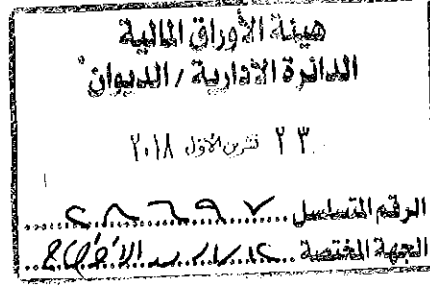 هيئة الأوراق المالية
الدائرة الادارية / الديوان
٢٣ تشرين الاول ٢٠١٨
الرقم المتسلسل ٢٨٦٩٧
الجهة المختصة